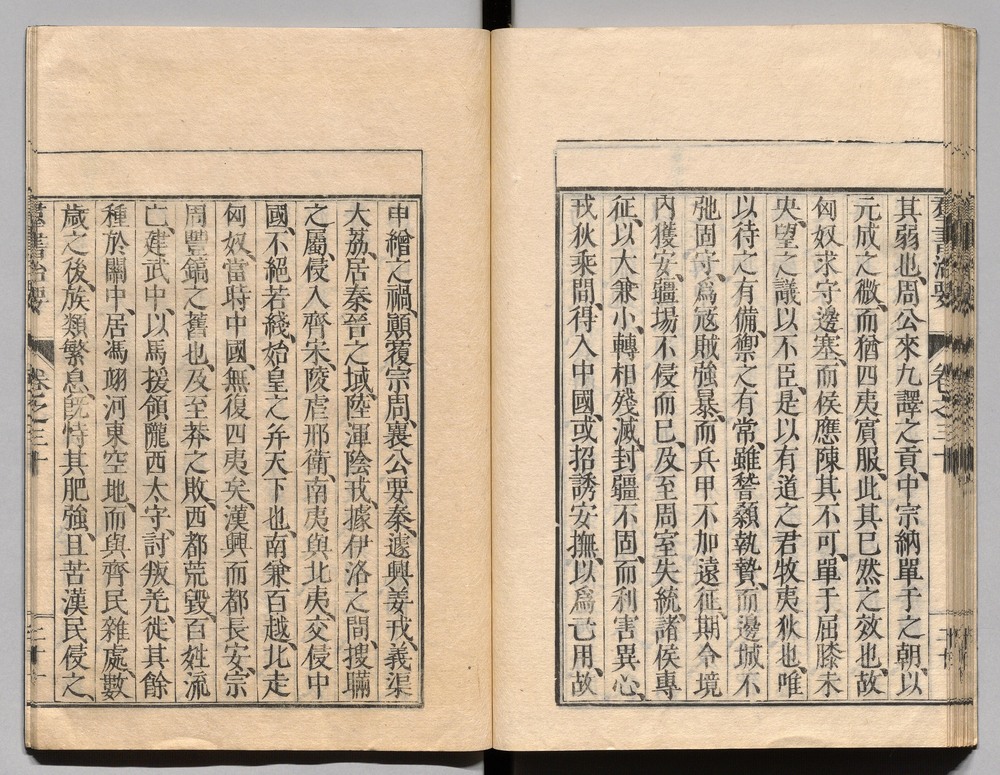 其弱也、周公來九譯之貢、中宗納單于之朝、以
元成之微、而猶四夷賓服、此其已然之效也、故
匈奴求守邊塞、而侯應陳其不可、單于屈膝未
央、望之議以不臣、是以有道之君牧夷狄也、唯
以待之有備、禦之有常、雖稽顙執贄、而邊城不
弛固守、爲寇賊強暴、而兵甲不加遠征、期令境
內獲安、疆場不侵而已、及至周室失統、諸侯專
征、以大兼小、轉相殘滅、封疆不固、而利害異心、
戎狄乘間、得入中國、或招誘安撫、以爲己用、故
申繒之禍、顚覆宗周、襄公要秦、遽興姜戎、義渠
大荔、居秦晉之域、陸渾陰戎、據伊洛之間、搜瞞
之屬、侵入齊宋、陵虐邢衞、南夷與北夷、交侵中
國、不絕若綫、始皇之并天下也、南兼百越、北走
匈奴、當時中國、無復四夷矣、漢興而都長安、宗
周豐鎬之舊也、及至莽之敗、西都荒毀、百姓流
亡、建武中、以馬援領隴西太守、討叛羌、徙其餘
種於關中、居馮翊河東空地、而與齊民雜處、數
歲之後、族類繁息、旣恃其肥強、且苦漢民侵之、
羣書治要
卷之三十
二十一